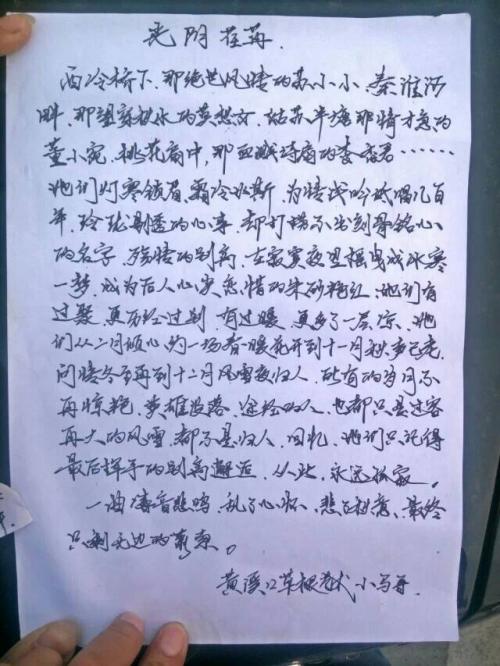 光阴荏苒.
西冷桥下,那绝艺风情的苏小小,秦淮河
畔,那望穿秋水的 姑苏半塘那情才意的
董小宛,桃花扇中,那血溅诗扇的李香君……
她们灯寒锁眉,霜冷水斯,为情浅吟低唱几百
年,玲珑剔透的心事,却打捞不出刻骨铭心
的名字,残情的别离,在寂寞夜里摇曳成冰寒
一梦,成为后人心尖悲情的朱砂艳红,她们有
过聚,更历经过别,有过暖,更多了一层凉,她
们从二月倾心约一场春暖花开到十一月秋声已老,
问情冬至再到十二月风雪夜归人,所有的岁月不
再惊艳,梦摧思路,途经的人,也都只是过客
再大的风雪,都不是归人,回忆,她们只记得
最后挥手的别离邂逅,从此,永远孤寂。
一曲清音悲鸣,乱了心怀,悲了秋意,最终
只剩无边的萧索。
黄溪口草根老式 小马哥.